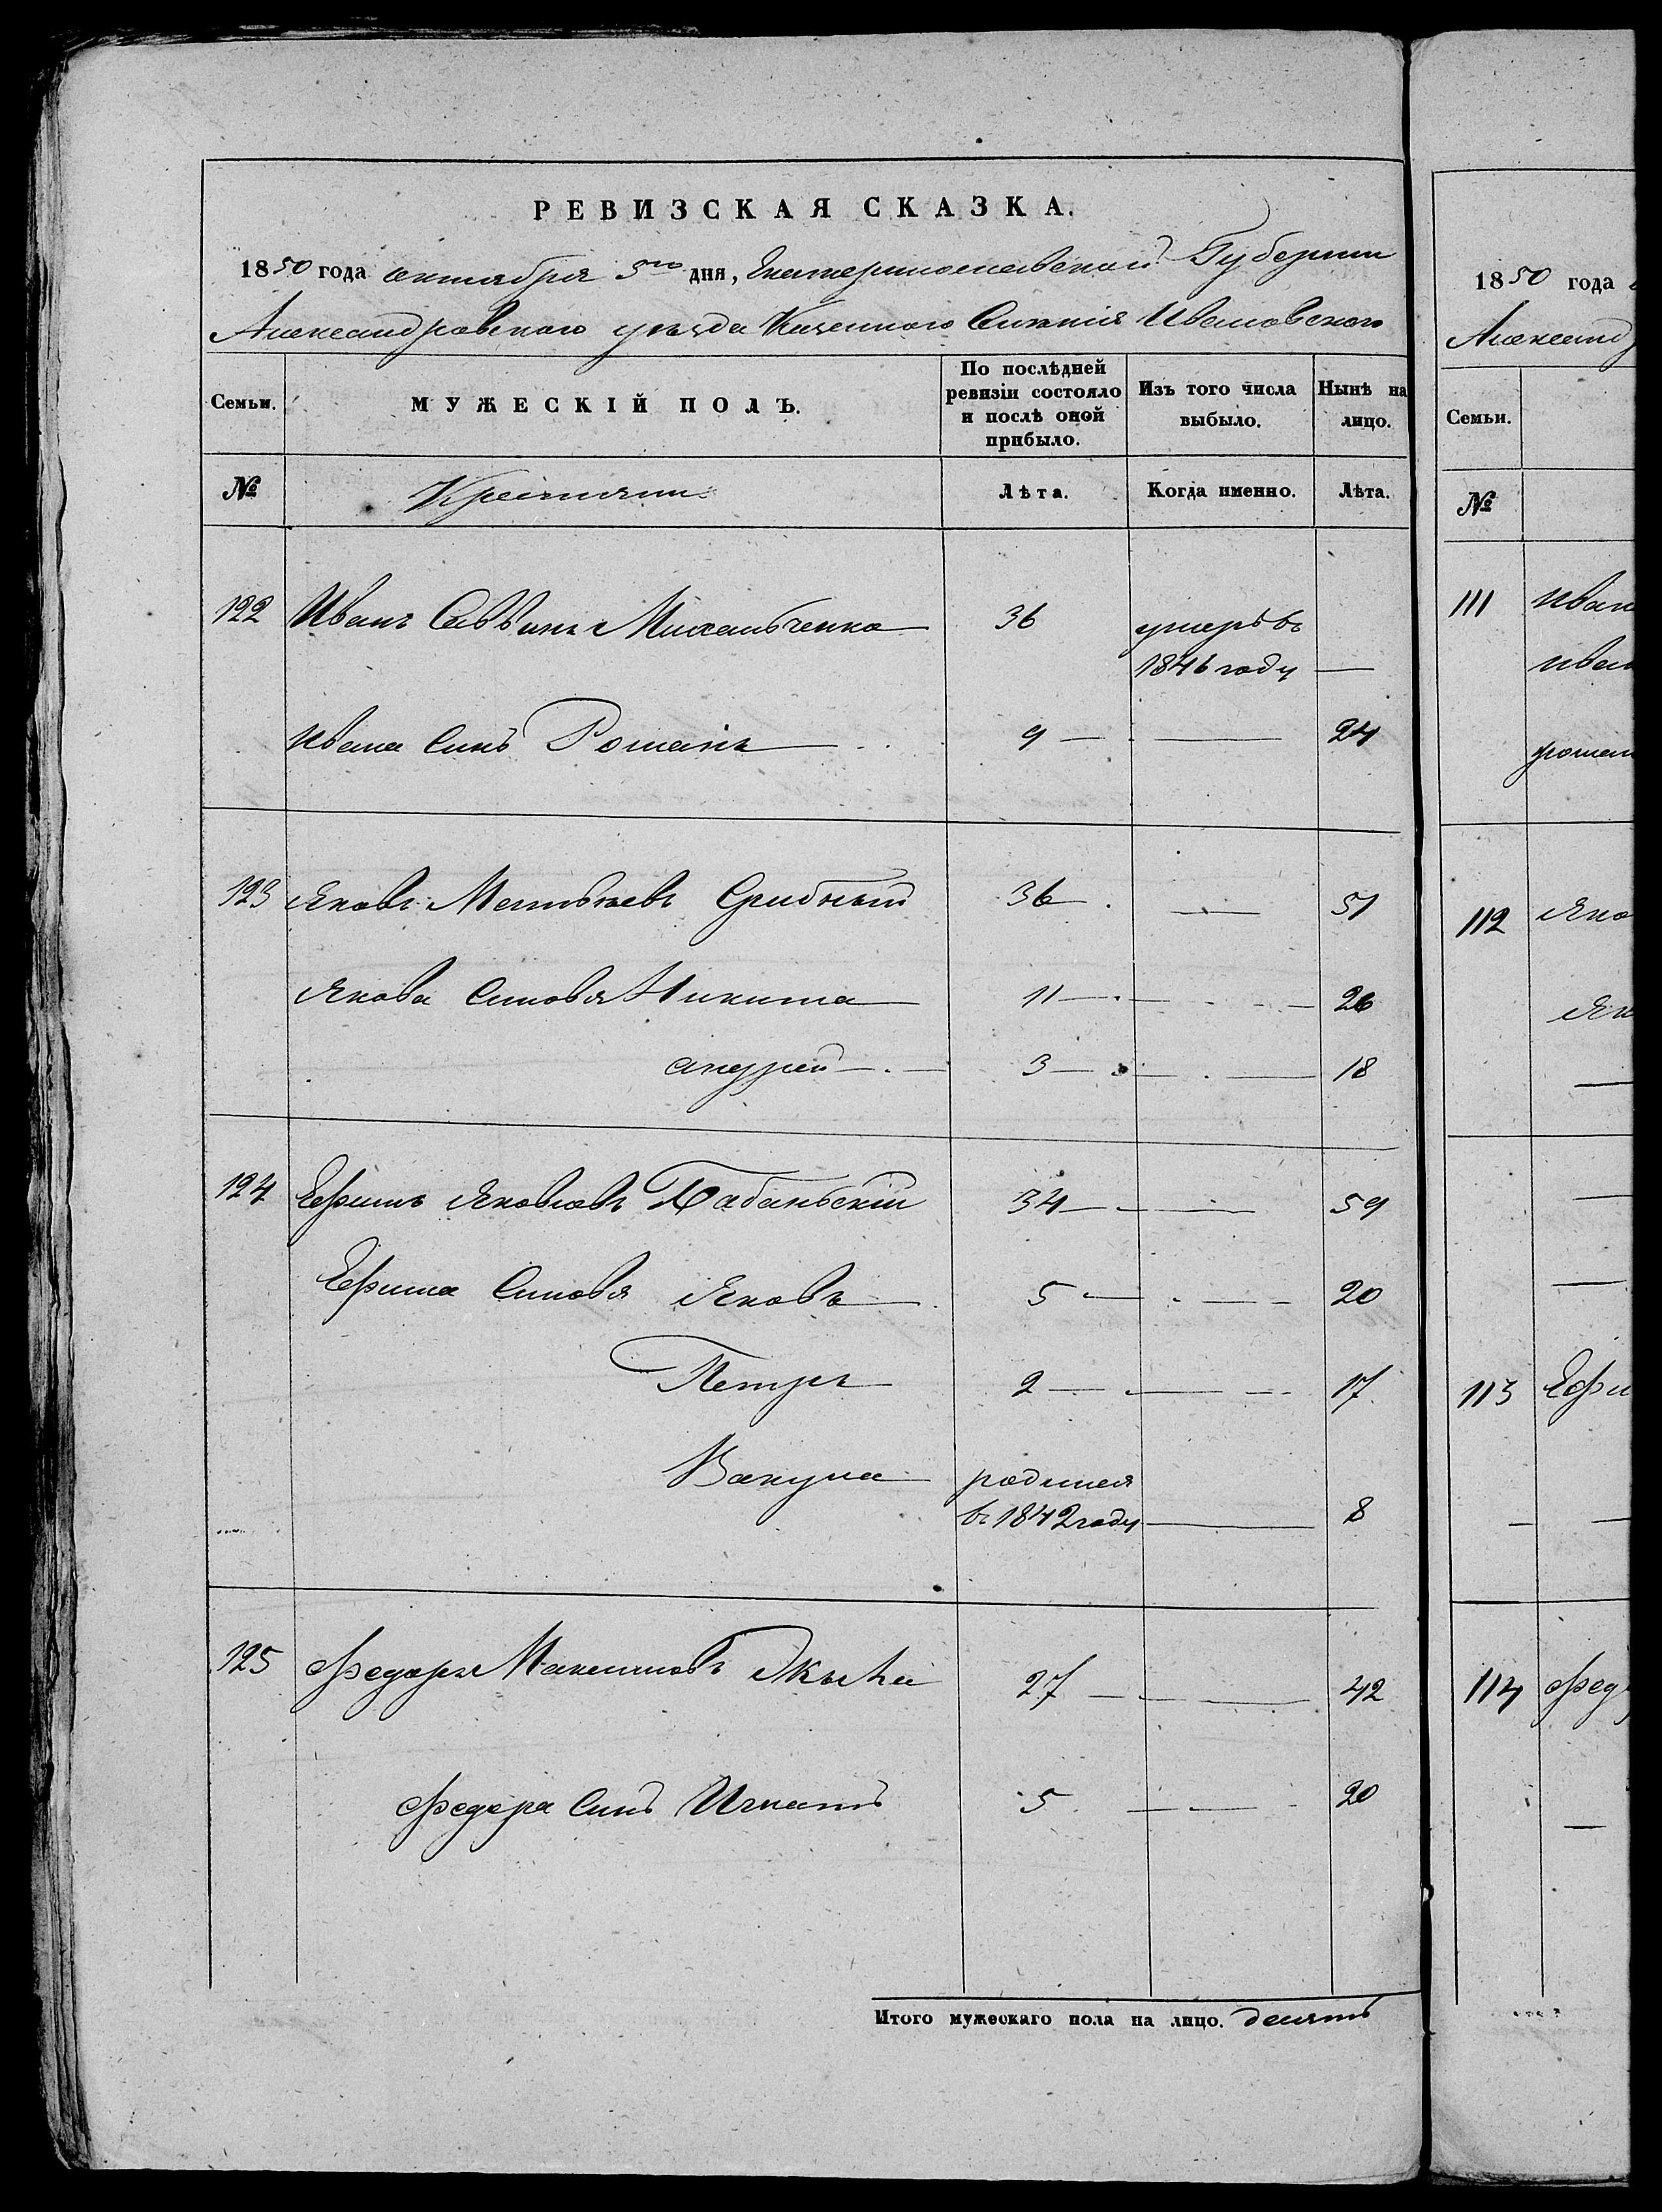 РЕВИЗСКАЯ СКАЗКА.
1850 года октября 5го дня, Екатеринославской Губернии
Александровского уезда Казенного Селения Ивановского
Семьи. МУЖЕСКІЙ ПОЛЪ. По послѣдней ревизіи состояло и послѣ оной прибыло. Изъ того числа выбыло. Нынѣ на лицо.
№ Крестяни Лѣта. Когда именно. Лѣта.
122 Иванъ Саввинъ Михальченко 36 умеръ въ
1846 году —
Ивана Синъ Романъ 9 — — 24
123 Яковъ Матвѣевъ 36 — 51
Якова Синовя Никита 11 — — 26
андрей 3 — — 18
124 Ефимъ Яковлевъ 34 — — 59
Ефима Синовя Яковъ 5 — — 20
Петръ 2 — — 17
Вакула родился
въ 1842 году — 8
125 Федоръ Максимовъ 27 — — 42
Федора Синъ Игнатъ 5 — — 20
Итого мужескаго пола на лицо. десять
1850 года
Александ
Семьи.
№
111 Иван
Иван
роман
112 Яко
Як
113 Ефи
114 Фед